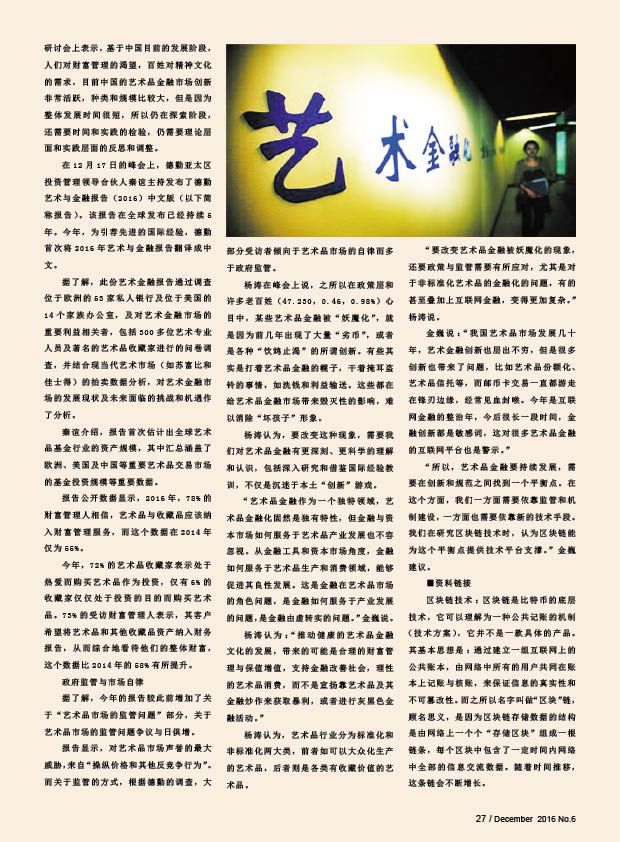 研讨会上表示，基于中国目前的发展阶段，
人们对财富管理的渴望，百姓对精神文化
的需求，目前中国的艺术品金融市场创新
非常活跃，种类和规模比较大，但是因为
整体发展时间很短，所以仍在探索阶段，
还需要时间和实践的检验，仍需要理论层
面和实践层面的反思和调整。
在 12 月 17 日的峰会上，德勤亚太区
投资管理领导合伙人秦谊主持发布了德勤
艺术与金融报告（2016）中文版（以下简
称报告）。该报告在全球发布已经持续 5
年。今年，为引荐先进的国际经验，德勤
首次将 2016 年艺术与金融报告翻译成中
文。
据了解，此份艺术金融报告通过调查
位于欧洲的 53 家私人银行及位于美国的
14 个家族办公室，及对艺术金融市场的
重要利益相关者，包括 300 多位艺术专业
人员及著名的艺术品收藏家进行的问卷调
查，并结合现当代艺术市场（如苏富比和
佳士得）的拍卖数据分析，对艺术金融市
场的发展现状及未来面临的挑战和机遇作
了分析。
秦谊介绍，报告首次估计出全球艺术
品基金行业的资产规模，其中汇总涵盖了
欧洲、美国及中国等重要艺术品交易市场
的基金投资规模等重要数据。
报告公开数据显示，2016 年，78% 的
财富管理人相信，艺术品与收藏品应该纳
入财富管理服务，而这个数据在 2014 年
仅为 55%。
今年，72% 的艺术品收藏家表示处于
热爱而购买艺术作为投资，仅有 6% 的
收藏家仅仅处于投资的目的而购买艺术
品。73% 的受访财富管理人表示，其客户
希望将艺术品和其他收藏品资产纳入财务
报告，从而综合地看待他们的整体财富，
这个数据比 2014 年的 58% 有所提升。
政府监管与市场自律
据了解，今年的报告较此前增加了关
于“艺术品市场的监管问题”部分，关于
艺术品市场的监管问题争议与日俱增。
报告显示，对艺术品市场声誉的最大
威胁，来自“操纵价格和其他反竞争行为”。
而关于监管的方式，根据德勤的调查，大
艺术金融化
部分受访者倾向于艺术品市场的自律而多
于政府监管。
杨涛在峰会上说，之所以在政策层和
许多老百姓（47.230, 0.46, 0.98%）心
目中，某些艺术品金融被“妖魔化”，就
是因为前几年出现了大量“劣币”，或者
是各种“饮鸩止渴”的所谓创新。有些其
实是打着艺术品金融的幌子，干着掩耳盗
铃的事情，如洗钱和利益输送。这些都在
给艺术品金融市场带来毁灭性的影响，难
以消除“坏孩子”形象。
杨涛认为，要改变这种现象，需要我
们对艺术品金融有更深刻、更科学的理解
和认识，包括深入研究和借鉴国际经验教
训，不仅是沉迷于本土“创新”游戏。
“艺术品金融作为一个独特领域，艺
术品金融化固然是独有特性，但金融与资
本市场如何服务于艺术品产业发展也不容
忽视。从金融工具和资本市场角度，金融
如何服务于艺术品生产和消费领域，能够
促进其良性发展。这是金融在艺术品市场
的角色问题，是金融如何服务于产业发展
的问题，是金融由虚转实的问题。”金巍说。
杨涛认为：“推动健康的艺术品金融
文化的发展，带来的可能是合理的财富管
理与保值增值，支持金融改善社会，理性
的艺术品消费，而不是宣扬靠艺术品及其
金融炒作来获取暴利，或者进行灰黑色金
融活动。”
杨涛认为，艺术品行业分为标准化和
非标准化两大类，前者如可以大众化生产
的艺术品，后者则是各类有收藏价值的艺
术品。
“要改变艺术品金融被妖魔化的现象，
还要政策与监管需要有所应对，尤其是对
于非标准化艺术品的金融化的问题，有的
甚至叠加上互联网金融，变得更加复杂。”
杨涛说。
金巍说：“我国艺术品市场发展几十
年，艺术金融创新也层出不穷，但是很多
创新也带来了问题，比如艺术品份额化、
艺术品信托等，而邮币卡交易一直都游走
在锋刃边缘，经常见血封喉。今年是互联
网金融的整治年，今后很长一段时间，金
融创新都是敏感词，这对很多艺术品金融
的互联网平台也是警示。”
“所以，艺术品金融要持续发展，需
要在创新和规范之间找到一个平衡点。在
这个方面，我们一方面需要依靠监管和机
制建设，一方面也需要依靠新的技术手段。
我们在研究区块链技术时，认为区块链能
为这个平衡点提供技术平台支撑。”金巍
建议。
■资料链接
区块链技术：区块链是比特币的底层
技术，它可以理解为一种公共记账的机制
（技术方案），它并不是一款具体的产品。
其基本思想是：通过建立一组互联网上的
公共账本，由网络中所有的用户共同在账
本上记账与核账，来保证信息的真实性和
不可篡改性。而之所以名字叫做“区块”链，
顾名思义，是因为区块链存储数据的结构
是由网络上一个个“存储区块”组成一根
链条，每个区块中包含了一定时间内网络
中全部的信息交流数据。随着时间推移，
这条链会不断增长。
27 / December 2016 No.6